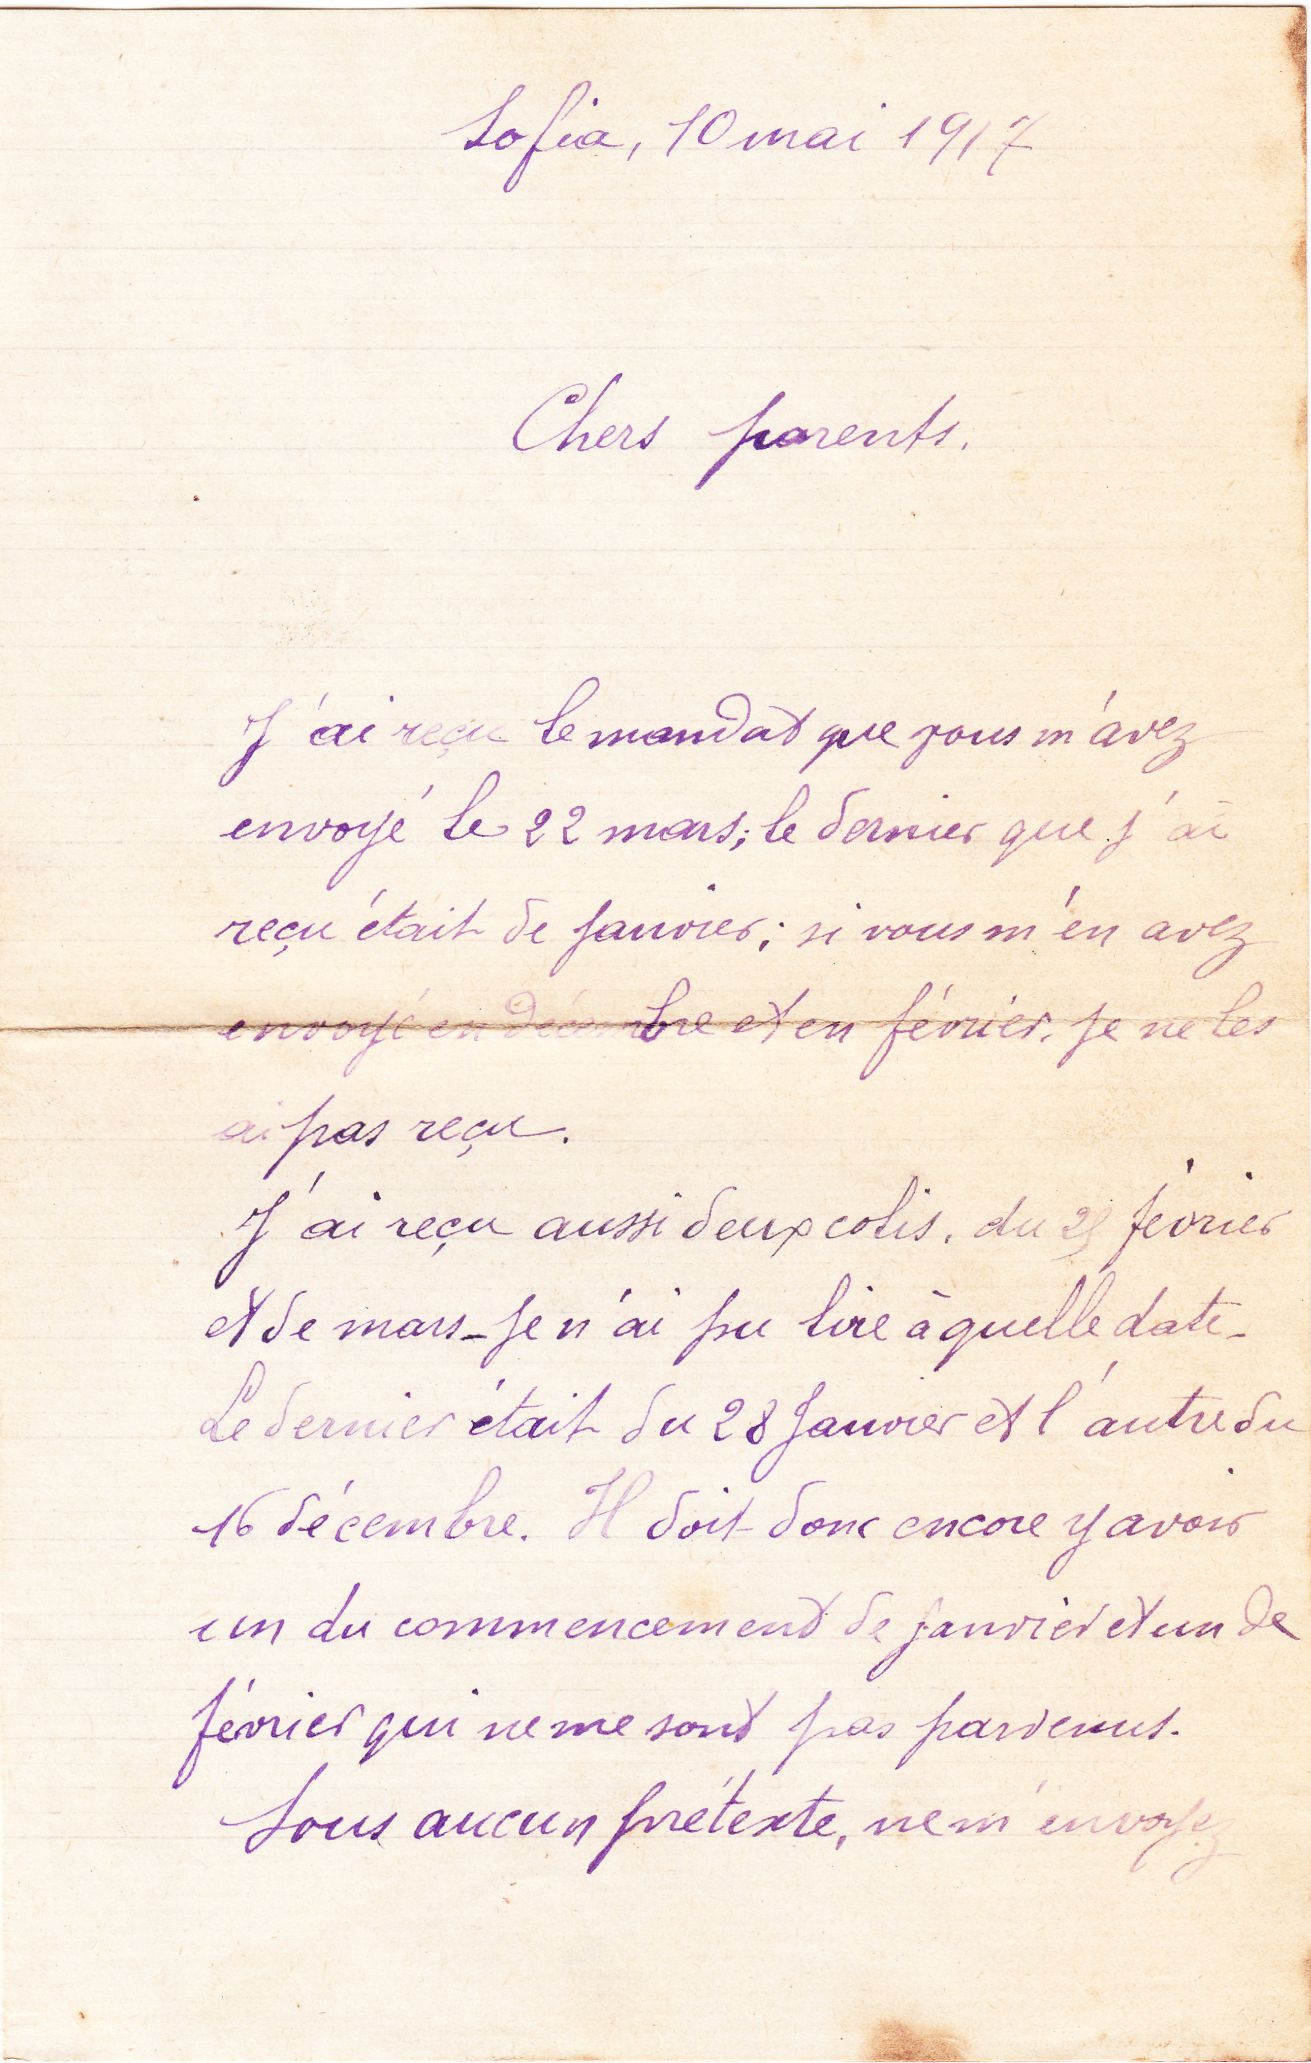 Sofia, 10 mai 1917
Chers parents.
J'ai reçu le mandat que vous m'avez
envoyé le 22 mars; le dernier que j'ai
reçu était de Janvier; si vous m'en avez
envoyé en décembre et en février, je ne les
ai pas reçu.
J'ai reçu aussi deux colis, du 25 février
et de mars - je n'ai pu lire à quelle date -
Le dernier était du 28 Janvier et l'autre du
16 décembre. Il doit donc encore y avoir
un du commencement de janvier et un de
février qui ne me sont pas parvenus.
Sous aucun prétexte, ne m'envoyez